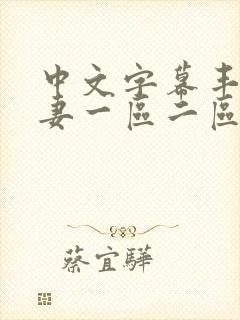 中文字幕丰
妻一區二區
蔡宜驊